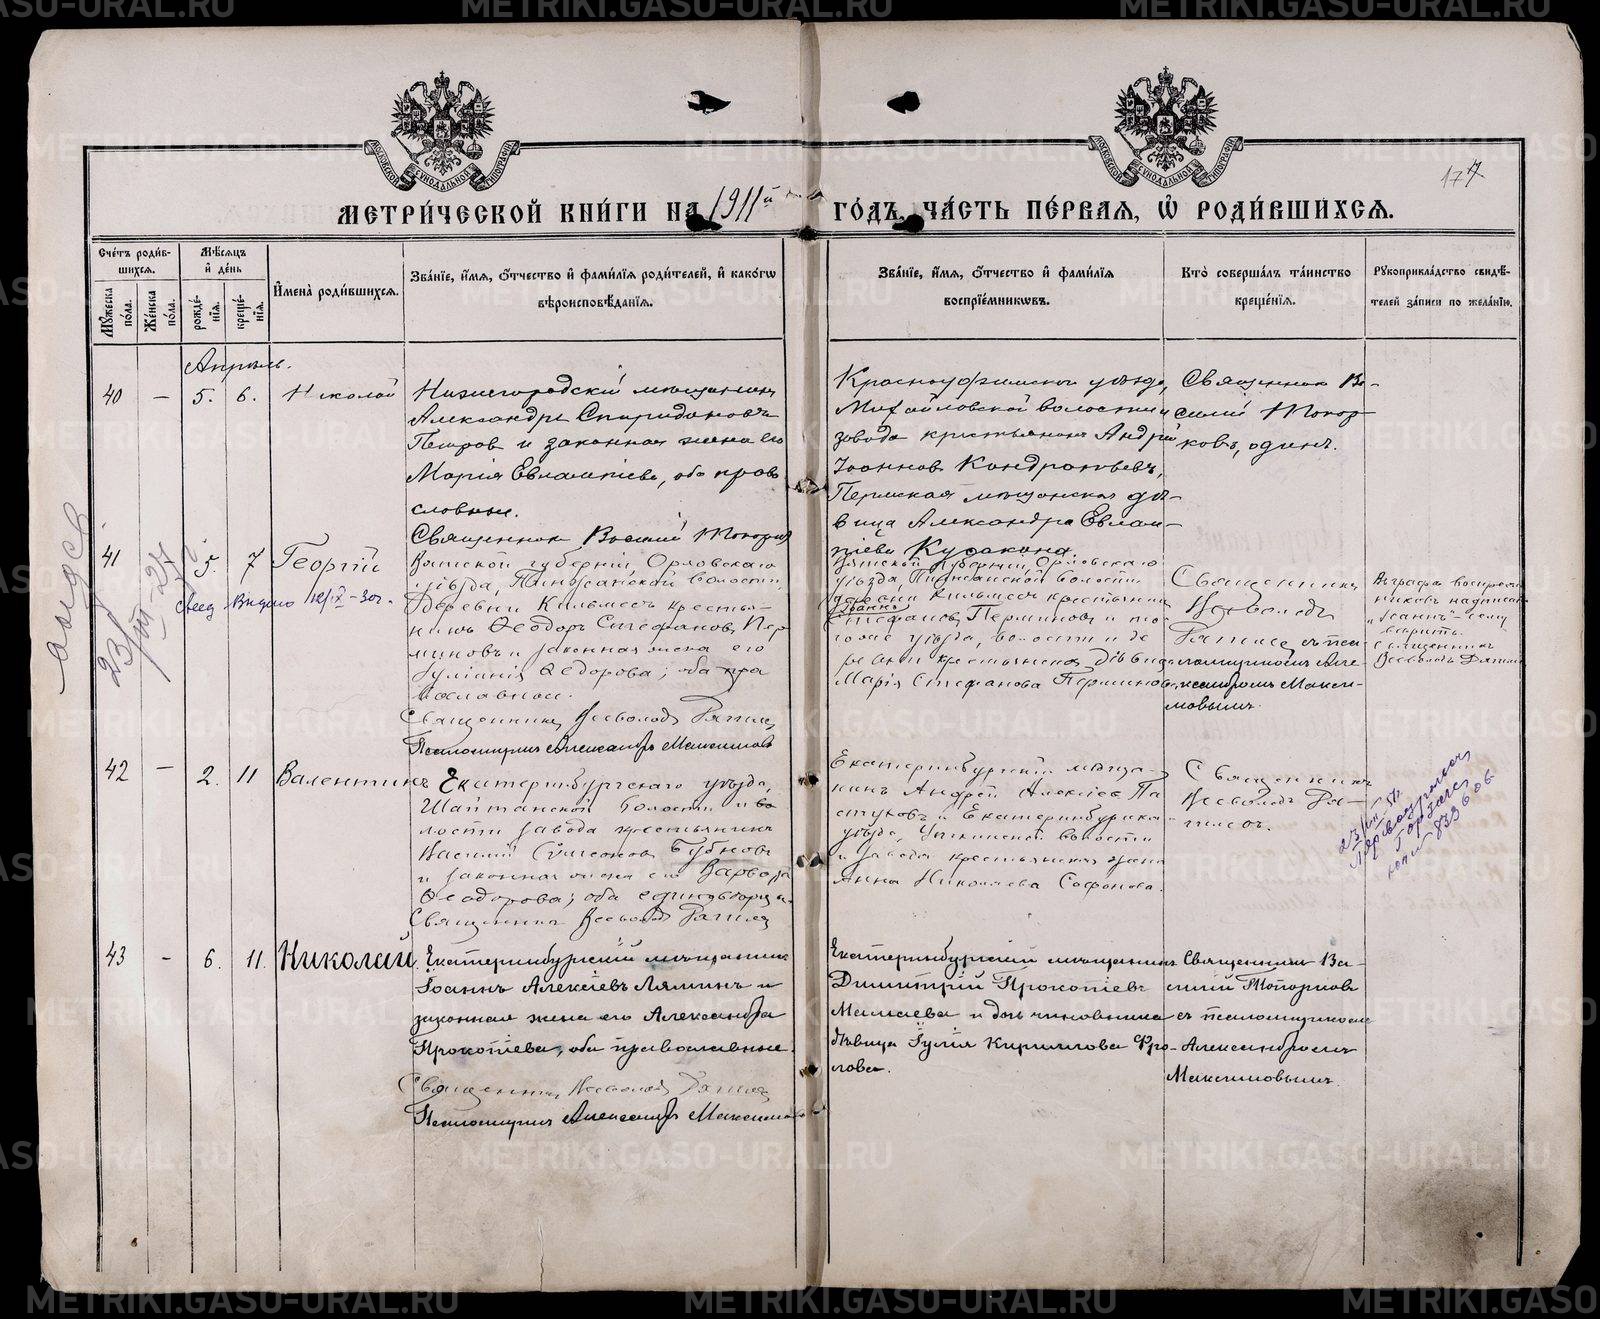 МЕТРИ́ЧЕСКОЙ КНИ́ГИ НА 1911й ГО́ДЪ, ЧА́СТЬ ПЕ́РВАЯ, Ѡ РОДИ́ВШИХСЯ.
177
Сче́тъ роди́в-
шихся.
Мѹ́жеска
по́ла.
Же́нска
по́ла.
Мѣ́сяцъ
и́ де́нь
рожде́-
нїя.
креще́-
нїя.
И́мена̀ роди́вшихся.
Зва́нїе, и́мя, о́тчество и́ фами́лїя роди́телей, и́ како́гѡ
вѣроисповѣ́данїя.
Зва́нїе, и́мя, о́тчество и́ фами́лїя
воспрїе́мникѡвъ.
Кто̀ соверша́лъ та́инство
креще́нїя.
Рѹкоприкла́дство свидѣ́-
телей за́писи по жела́нїю.
Апрѣль.
40 — 5. 6. Николай
Нижегородскій мѣщанинъ
Александръ Спиридоновъ
Петров и законная жена его
Марія Евлампіева, оба право
славные.
Священник Василій Топорков
Красноуфимскаго уѣзда,
Михайловской волости и
завода крестьянинъ Андрей
Іоаннов Кондратьевъ,
Пермская мѣщанская дѣ-
вица Александра Евлам-
піева
Священник Ва-
силій Топор
ковъ, один.
41 5. 7 Георгій
Вятской губерніи, Орловскаго
уѣзда, волости
деревни Кильмесъ крестья-
нинъ Ѳеодоръ Стефановъ Пер
миновъ и законная жена его
Іуліанія Ѳедорова; оба пра
вославные.
Священникъ Всеволодъ
Псаломщикъ Александръ Максимовъ
Вятской губерніи, Орловскаго
уѣзда, волости
деревни Кильмесъ крестьянинъ
Іоаннъ
Стефановъ Перминовъ и то
го же уѣзда, волости и де
ревни крестьянская дѣвица
Марія Стефанова Перминова
Священникъ
Всеволодъ
съ пса
ломщикомъ Але-
ксандромъ Макси-
мовымъ.
надписан
„Іоаннъ“ —
вѣрить.
Священникъ
Всеволодъ
42 — 2. 11 Валентинъ
Екатеринбургскаго уѣзда,
Шайтанской волости и во
лости завода крестьянинъ
Василій Симеонов Бубновъ
и законная жена его Варвара
Ѳеодорова; оба единовѣрцы.
Священникъ Всеволодъ
Екатеринбургскій мѣща-
нинъ Андрей Алексіев Па
стуховъ и Екатеринбургска-
уѣзда, Уткинской волости
и завода крестьянская жена
Анна Николаева Сафонова.
Священникъ
Всеволодъ
43 — 6. 11. Николай
Екатеринбургскій мѣщанинъ
Іоаннъ Алексіевъ Ляминъ и
законная жена его Александра
Прокопіева, оба православные.
Священникъ Всеволодъ
Псаломщикъ Александръ Максимовъ
Екатеринбургскій мѣщанинъ
Димитрій Прокопіевъ
Мамаева и дочь чиновника
дѣвица Іулія Кириллова Фро-
лова.
Священникъ Ва-
силій Топорков
съ псаломщикомъ
Александромъ
Максимовымъ.
METRIKI.GASO-URAL.RU